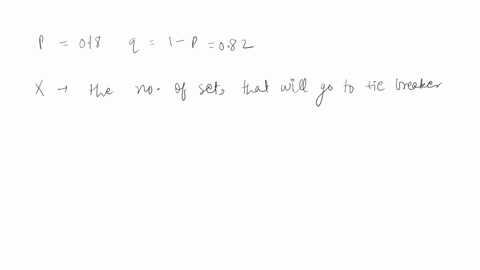 P = 0.18 q = 1 - P = 0.82
X → the no. of sets that will go to tie breaker